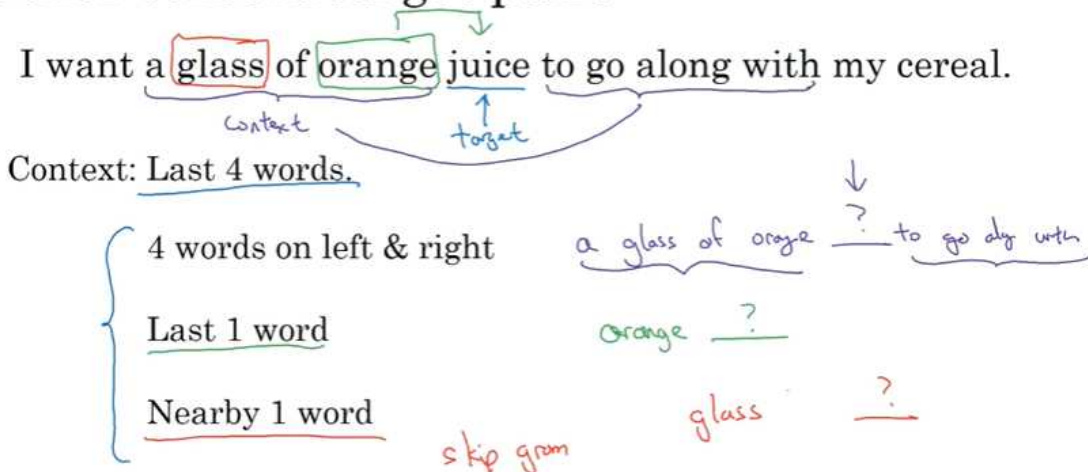 I want a glass of orange juice to go along with my cereal.
context
target
Context: Last 4 words.
4 words on left & right a glass of orange ? to go alg with
Last 1 word orange ?
Nearby 1 word glass ?
skip gram